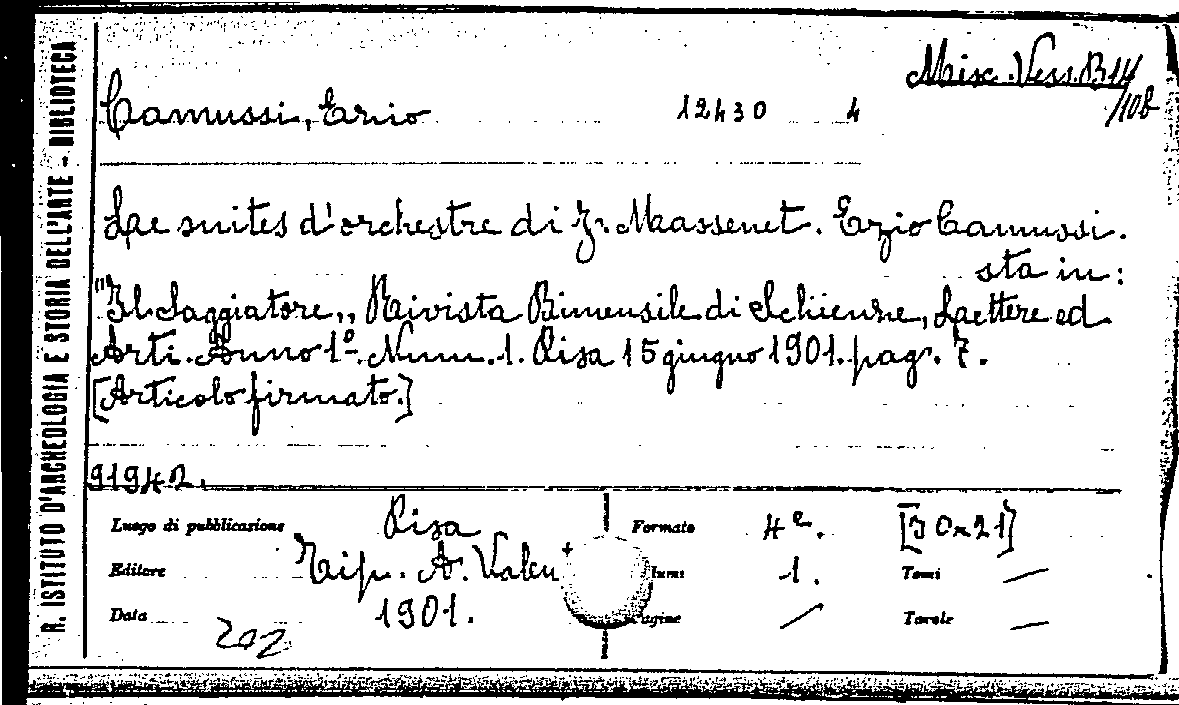 R. ISTITUTO D'ARCHEOLOGIA E STORIA DELL'ARTE - BIBLIOTECA
Misc. Vess. B 14
/108
Camussi, Ezio 12430 4
Le suites d'orchestre di J. Massenet. Ezio Camussi.
sta in:
"Il Saggiatore,, Rivista Bimensile di Schienze, Lettere ed
Arti. Anno 1º. Num. 1. Pisa 15 giugno 1901. pag. 7.
[Articolo firmato.]
91942.
Luogo di pubblicazione Pisa Formato 4º. [30x21]
Editore Tip. A. Valen lumi 1. Tomi —
Data 1901. agine / Tavole —
202